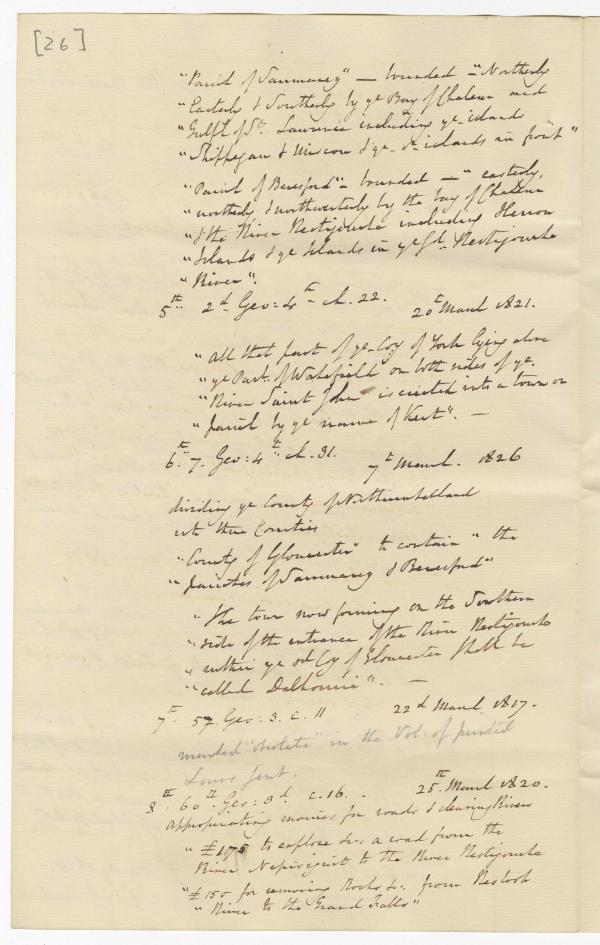 [26]
"Parish of Saumarez" — bounded — "Northerly
"Easterly & Southerly by ye Bay of Chaleur and
"Gulf of St. Lawrence including ye islands
"Shippegan & Miscou & ye sd. islands in front"
"Parish of Beresford" — bounded — "easterly,
"northerly & northwesterly by the bay of Chaleur
"& the River Restigouche including Herron
"Islands & ye Islands in ye sd. Restigouche
"River".
5th. 2d Geo: 4th ch. 22. 20th March 1821.
"All that part of ye Coy of York lying above
"ye Parh. of Wakefield on both sides of ye.
"River Saint John is erected into a town or
"parish by ye name of Kent". —
6th. 7. Geo: 4th ch. 31. 7th March. 1826
dividing ye County of Northumberland
into three Counties
"County of Gloucester" to contain "the
"parishes of Saumarez & Beresford"
"The town now forming on the Southern
"side of the entrance of the River Restigouche
"within ye sd Coy of Gloucester shall be
"called Dalhousie". —
7th. 57. Geo: 3. c. 11 22d March 1817.
marked "obsolete" in the Vol. of printed
Laws sent.
8th. 60th Geo: 3d c. 16. 25th March 1820.
Appropriating monies for roads & clearing Rivers
"£175 to explore &c. a road from the
River Nepisiguit to the River Restigouche
"£150 for removing Rocks &c. from Restook
"River to the Grand Falls"